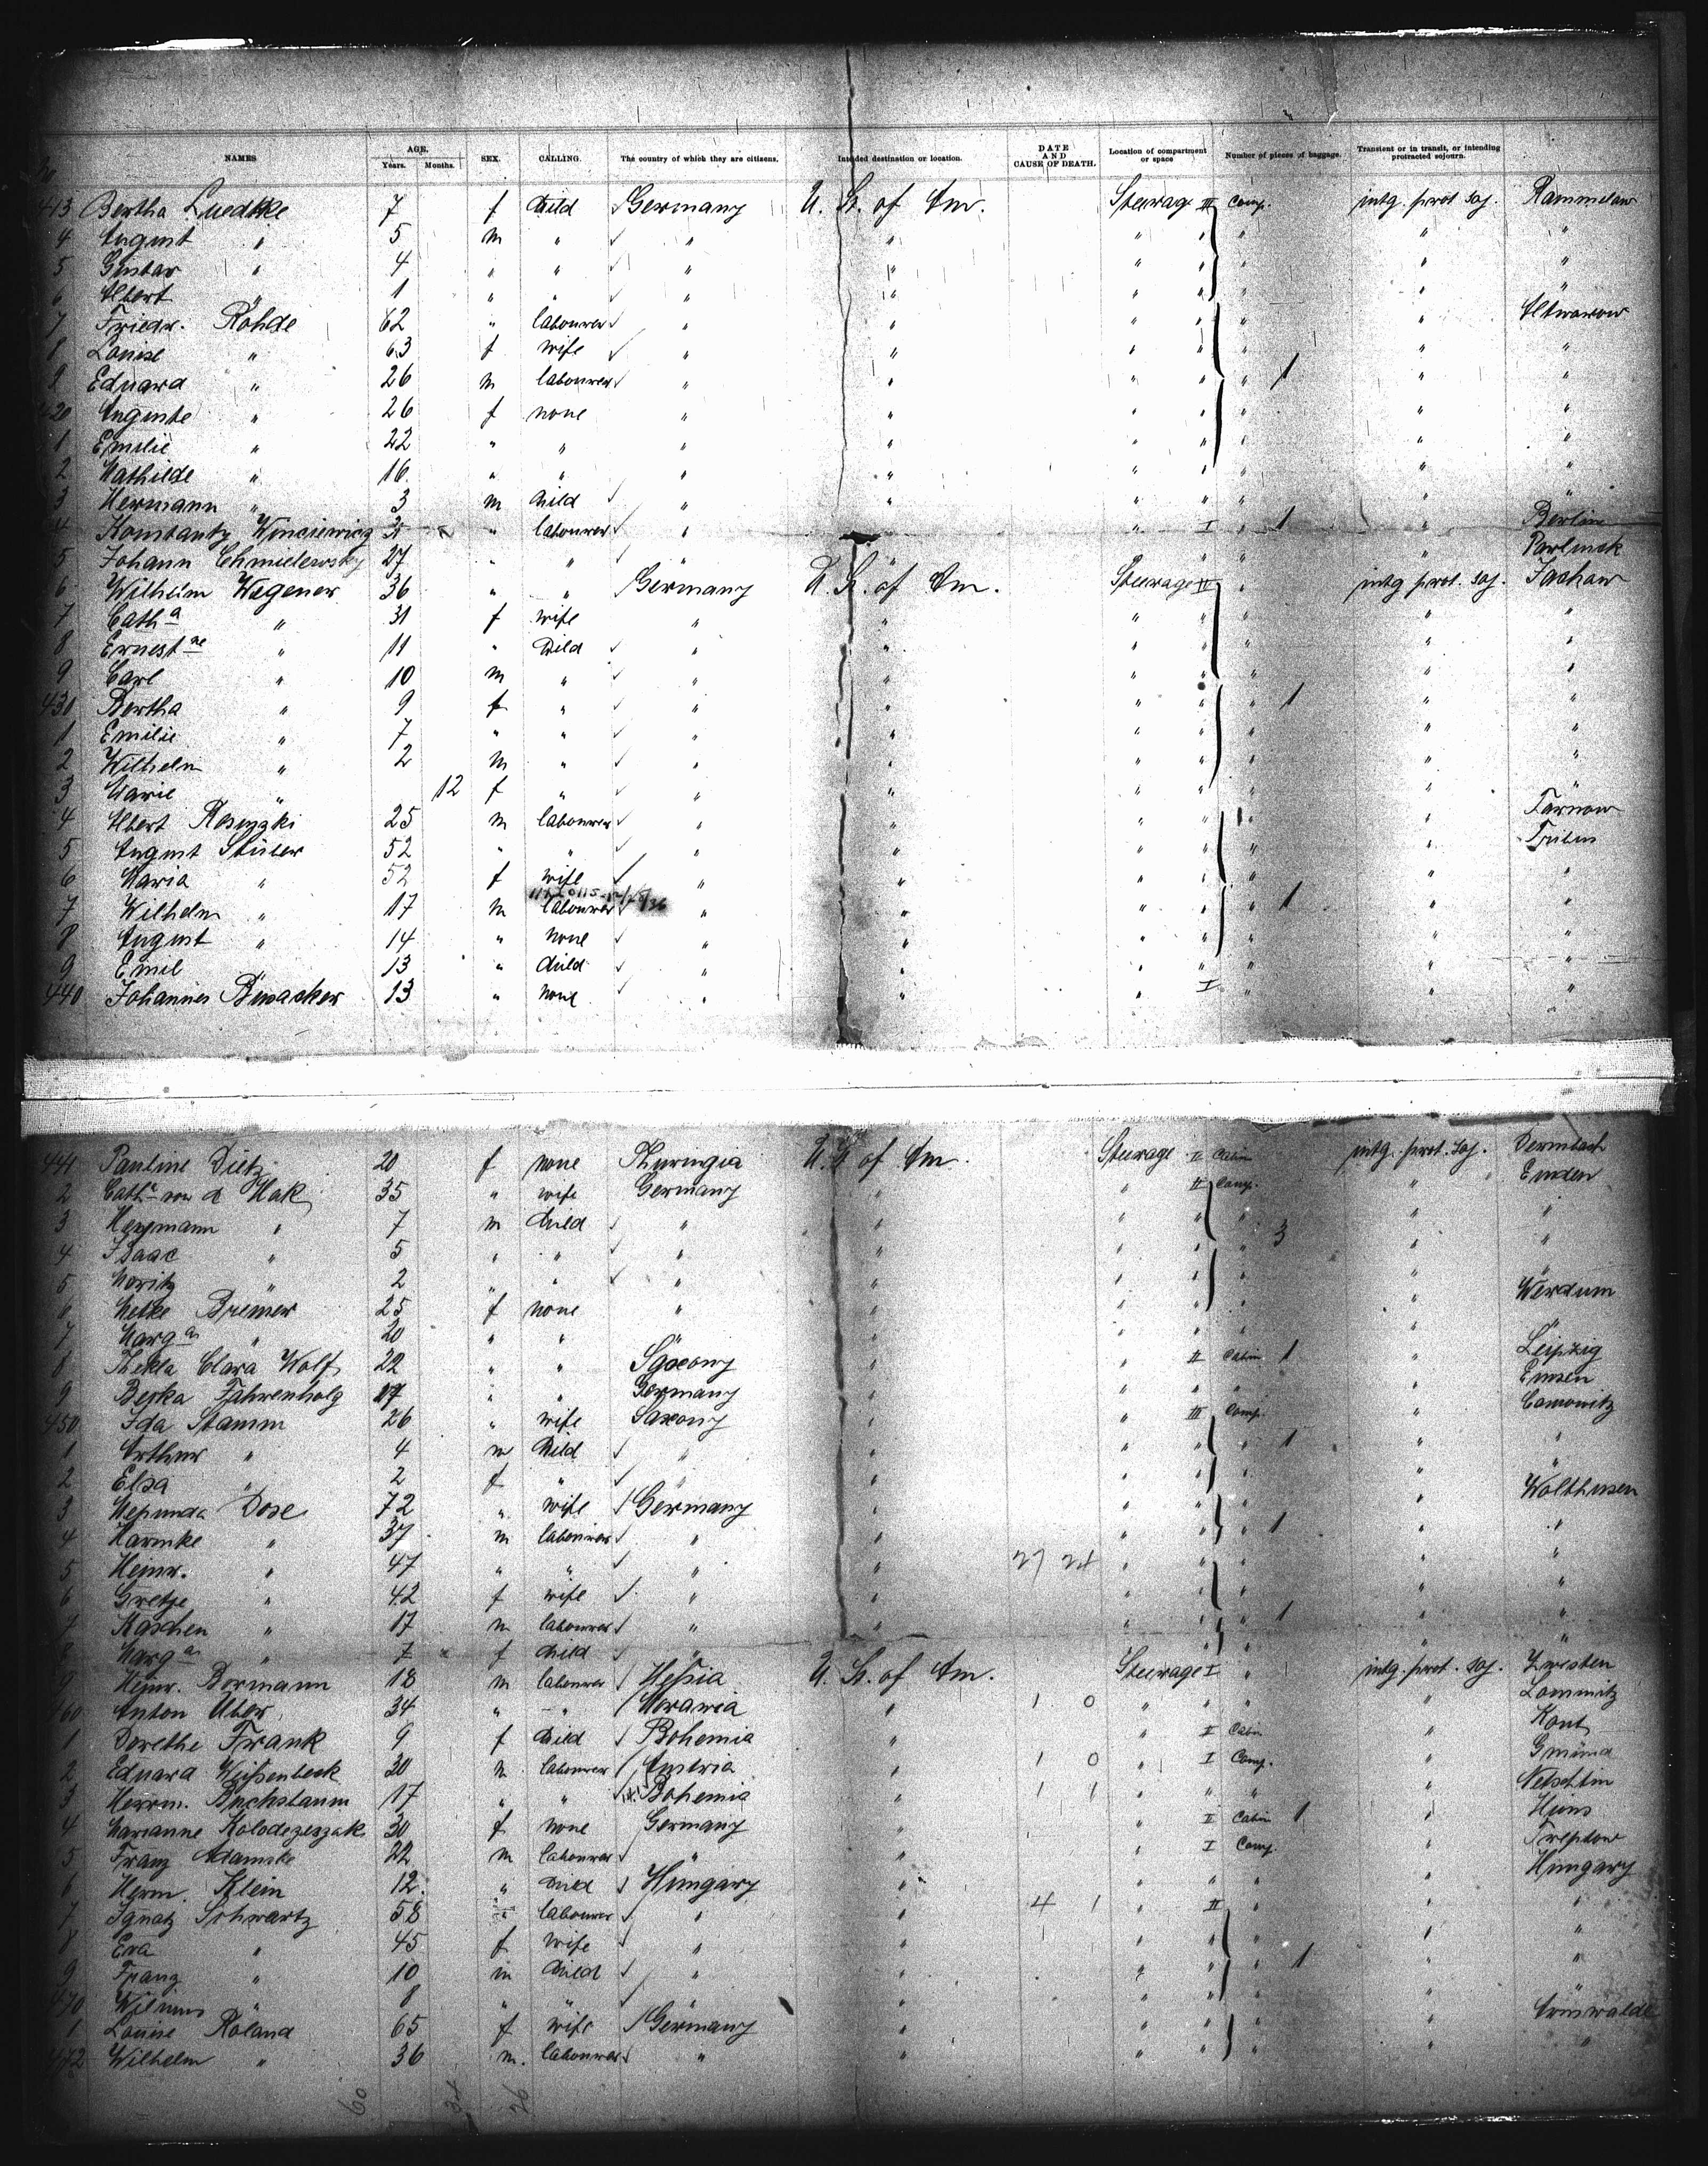 NAMES AGE. Years. Months. SEX. CALLING. The country of which they are citizens. Intended destination or location. DATE AND CAUSE OF DEATH. Location of compartment or space Number of pieces of baggage. Transient or in transit, or intending protracted sojourn.
413 Bertha Luedtke 7 f Child Germany U. St. of Am. Steerage III Comp. intg. prot. soj. Rammelow
4 August " 5 m " " " " " " " "
5 Gustav " 4 " " " " " " " " "
6 Albert " 1 " " " " " " " " "
7 Friedr. Rohde 62 " labourer " " " " " "
8 Louise " 63 f wife " " " " " " "
9 Eduard " 26 m labourer " " " " " 1 " "
420 Auguste " 26 f none " " " " " " "
1 Emilie " 22 " " " " " " " " "
2 Mathilde " 16 " " " " " " " " "
3 Hermann " 3 m Child " " " " " " "
4 Konstanty " labourer " " I " 1 " Berlin
5 Johann Chmielewsky 27 " " " " " " " "
6 Wilhelm Wegener 36 " " Germany U. St. of Am. Steerage II " intg prot. soj.
7 Cath.a " 31 f wife " " " " " " "
8 Ernest.ne " 11 " Child " " " " " " "
9 Carl " 10 m " " " " " " " "
430 Bertha " 9 f " " " " " " 1 " "
1 Emilie " 7 " " " " " " " " "
2 Wilhelm " 2 m " " " " " " " "
3 Marie " 12 f " " " " " " " "
4 Albert 25 m labourer " " " " " " Tarnow
5 August Stüber 52 " " " " " " " "
6 Maria " 52 f wife " " " " " " "
7 Wilhelm " 17 m labourer " " " " " 1 " "
8 August " 14 " none " " " " " " "
9 Emil " 13 " Child " " " " " " "
440 Johannes 13 " none " " " I " " "
441 Pauline Dietz 20 f none Thuringia U. S. of Am. Steerage II Cabin intg. prot. soj. Dermbach
2 Cath.a von d Hak 35 " wife Germany " " II Comp. " Emden
3 Hermann " 7 m Child " " " " " " "
4 Isaac " 5 " " " " " " " 3 " "
5 Moritz " 2 " " " " " " " " "
6 Bremer 25 f none " " " " " " Werdum
7 Marg.a " 20 " " " " " " " " "
8 Thekla Clara Wolf 22 " " Saxony " " II Cabin 1 " Leipzig
9 Fahrenholz 17 " " Germany " " " " " Emden
450 Ida Stamm 26 " wife Saxony " " III Comp. "
1 Arthur " 4 m Child " " " " " 1 " "
2 Elsa " 2 f " " " " " " " "
3 Dose 72 " wife Germany " " " " " Wolthusen
4 Harmke " 37 m labourer " " " " " 1 " "
5 Heinr. " 47 " " " " " " " " "
6 Gretje " 42 f wife " " " " " " "
7 " 17 m labourer " " " " " 1 " "
8 Marg.a " 7 f child " " " " " " "
9 Heinr. Bormann 18 m labourer Hessia U. St. of Am. Steerage I " intg. prot. soj. Zwesten
460 Anton Uber 34 " " Moravia " 1 0 " " " " Lomnitz
1 Dorethe Frank 9 f Child Bohemia " " II Cabin " Kout
2 Eduard Weissenbeck 20 m labourer Austria " 1 0 " I Comp. " Gmünd
3 Herrm. Buchsbaum 17 " " Bohemia " 1 1 " " " " Netschtin
4 Marianne Kolodzejzak 30 f none Germany " " II Cabin 1 "
5 Franz Adamske 22 m labourer " " " I Comp. " Treptow
6 Herm. Klein 12 " Child Hungary " " " " " Hungary
7 Ignatz Schwartz 58 " labourer " " 4 1 " II " " "
8 Eva " 45 f wife " " " " " " "
9 Franz " 10 m Child " " " " " 1 " "
470 " 8 " " " " " " " "
1 Louise Roland 65 f wife Germany " " " " " Arnswalde
472 Wilhelm " 36 m. labourer " " " " " " "
60